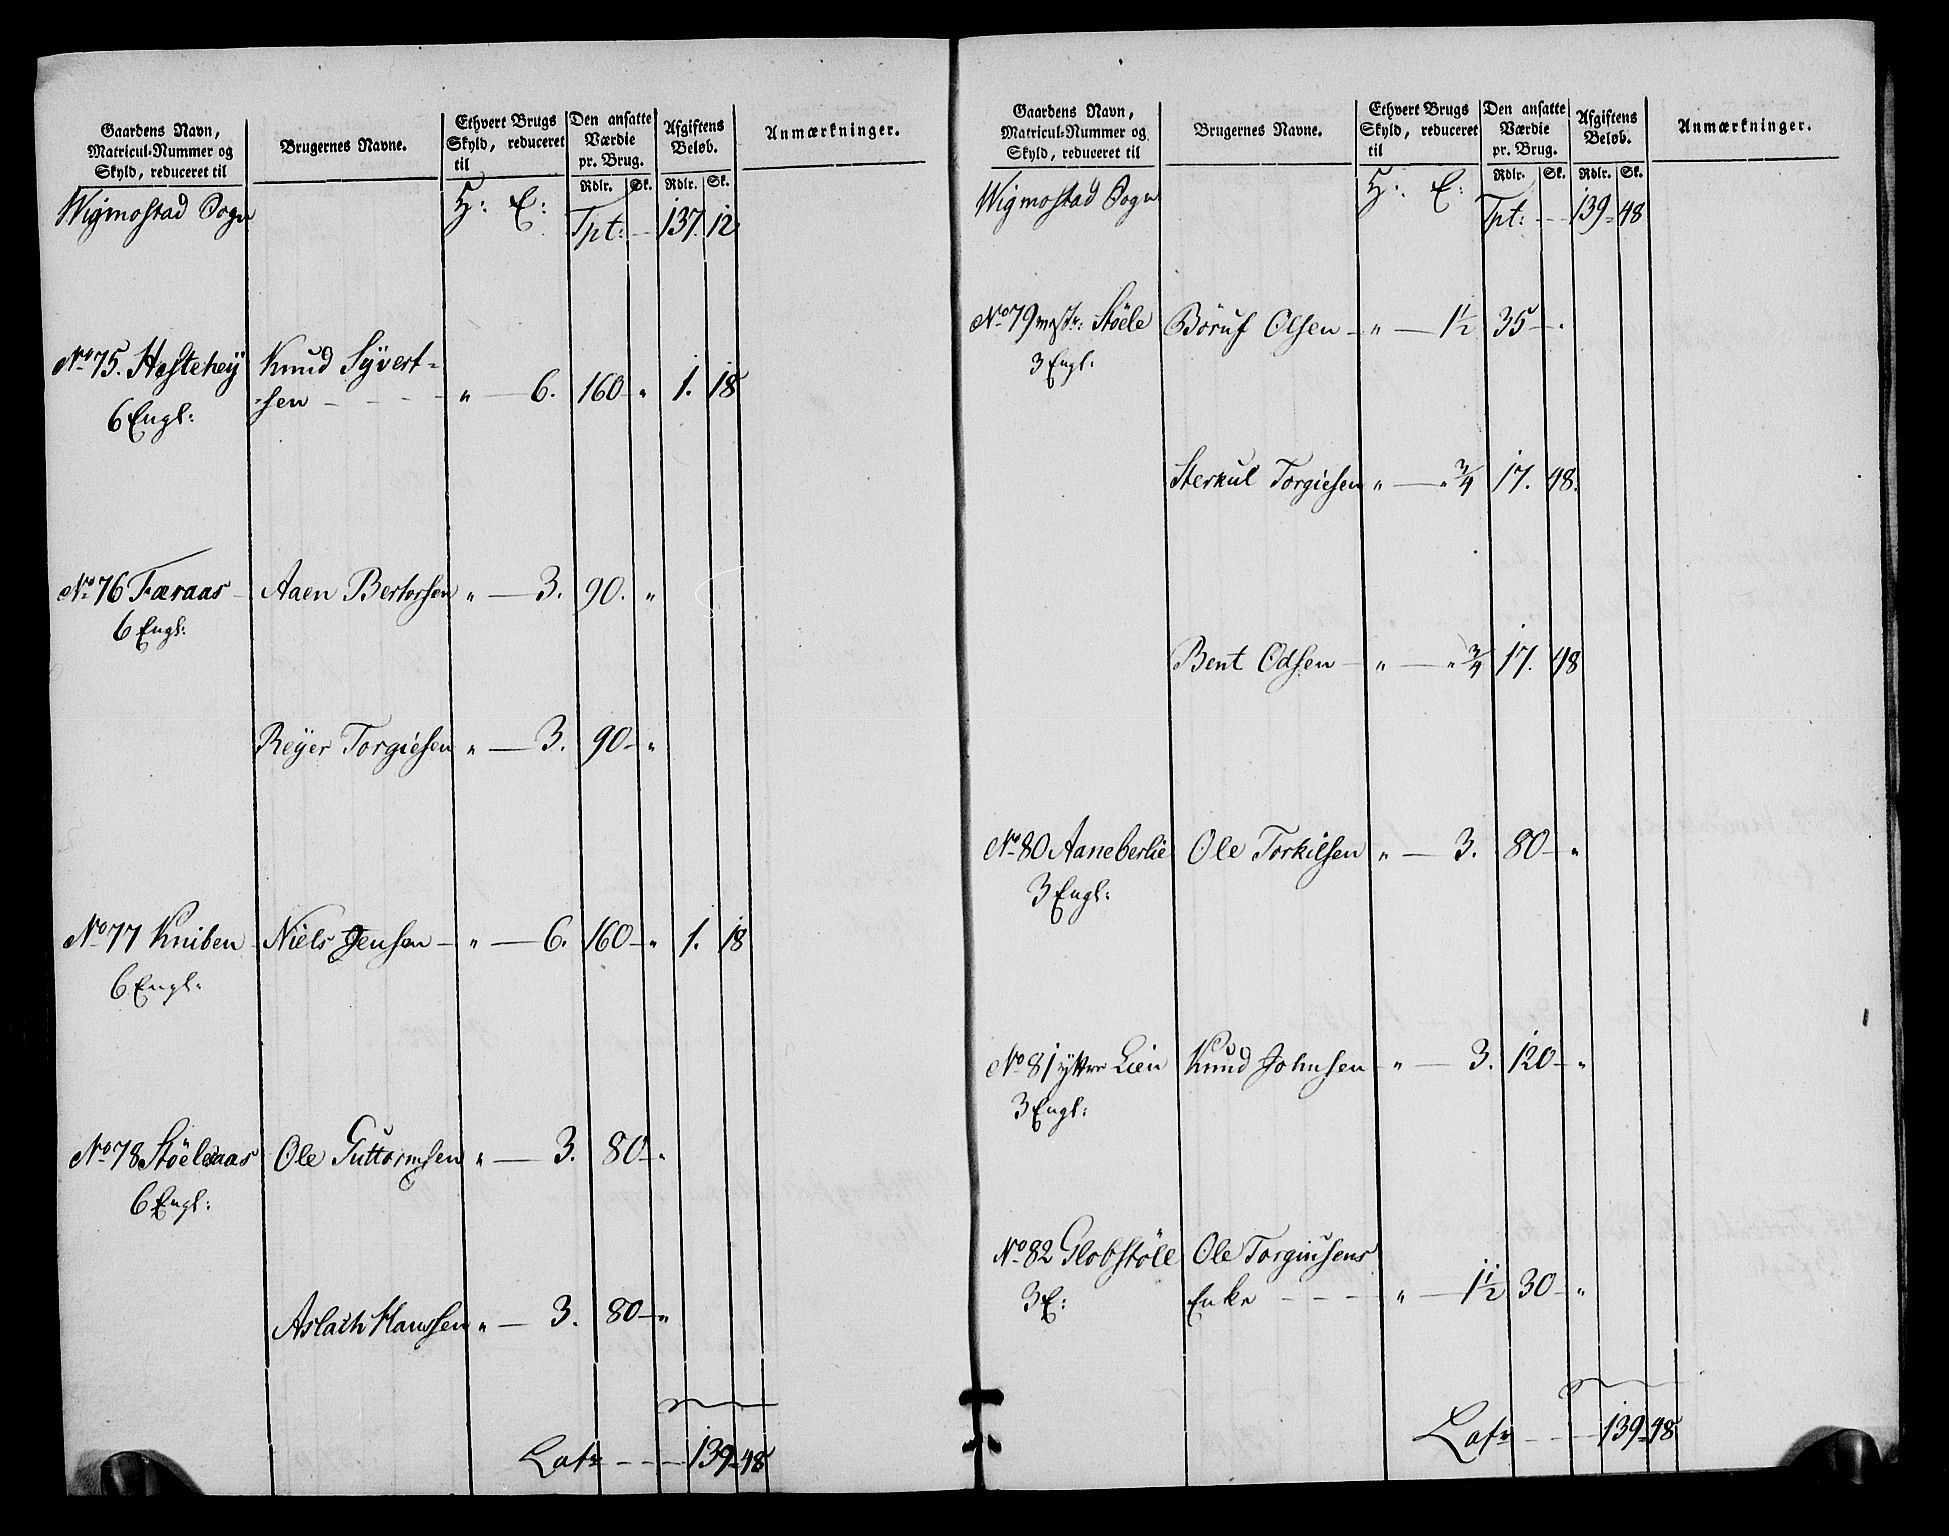 Gaardens Navn,
Matricul-Nummer og
Skyld, reduceret til
Brugernes Navne.
Ethvert Brugs
Skyld, reduceret
til
Den ansatte
Værdie
pr. Brug.
Rdlr. Sk.
Afgiftens
Beløb.
Rdlr. Sk.
Anmærkninger.
Wigmostad Sogn H: E: Tpt: - 137. 12
No 75. Hestehey Knud Syvert-
-sen - - - - " - 6. 160 " 1. 18
6 Engl:
No 76 Færaas - Aaen Bertorsen " - 3. 90. "
6 Engl:
Reÿer Torgiesen " - 3. 90 - "
No 77 Kniben - Niels Jensen - " - 6. 160 - " 1. 18
6 Engl:
No 78 Stöelsaas Ole Guttormsen " - 3. 80 - "
6 Engl:
Aslach Hansen " - 3. 80 - "
Latr - - - 139 - 48
Gaardens Navn,
Matricul-Nummer og
Skyld, reduceret til
Brugernes Navne.
Ethvert Brugs
Skyld, reduceret
til
Den ansatte
Værdie
pr. Brug.
Rdlr. Sk.
Afgiftens
Beløb.
Rdlr. Sk.
Anmærkninger.
Wigmostad Sogn H: E: Tpt: - - 139 - 48
No 79 mestr: Stöele Böruf Olsen - " - 1½ 35 - "
3 Engl:
Sterkul Torgiesen " - " ¾ 17. 48.
Bent Odsen - " - " ¾ 17. 48
No 80 Aaneberlie Ole Torkilsen " - 3. 80 - "
3 Engl:
No 81 yttre Lien Knud Johnsen - " - 3. 120 - "
3 Engl:
No 82 Globstöle Ole Torgiusens
3 E: Enke - - - - " - 1½ 30 - "
Latr - - - 139 - 48